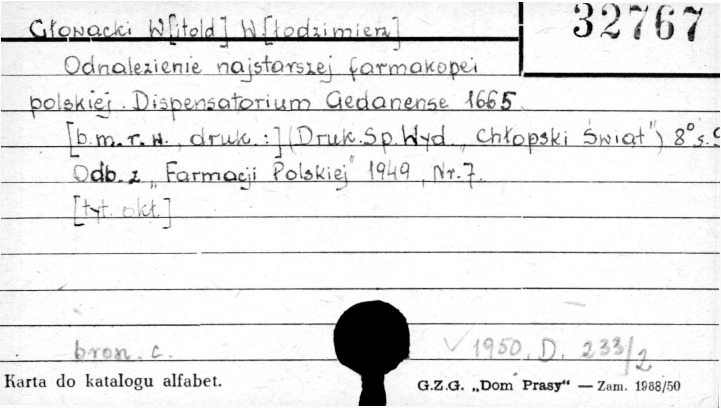 32767
Głowacki W[itold] W[łodzimierz]
Odnalezienie najstarszej farmakopei
polskiej. Dispensatorium Gedanense 1665.
[b.m.r.w., druk.:] (Druk. Sp. Wyd. „Chłopski Świat") 8° s.
Odb. z „Farmacji Polskiej" 1949, Nr. 7.
[tyt. okł.]
bron. c.
√ 1950. D. 233/2
Karta do katalogu alfabet.
G.Z.G. „Dom Prasy“ — Zam. 1988/50